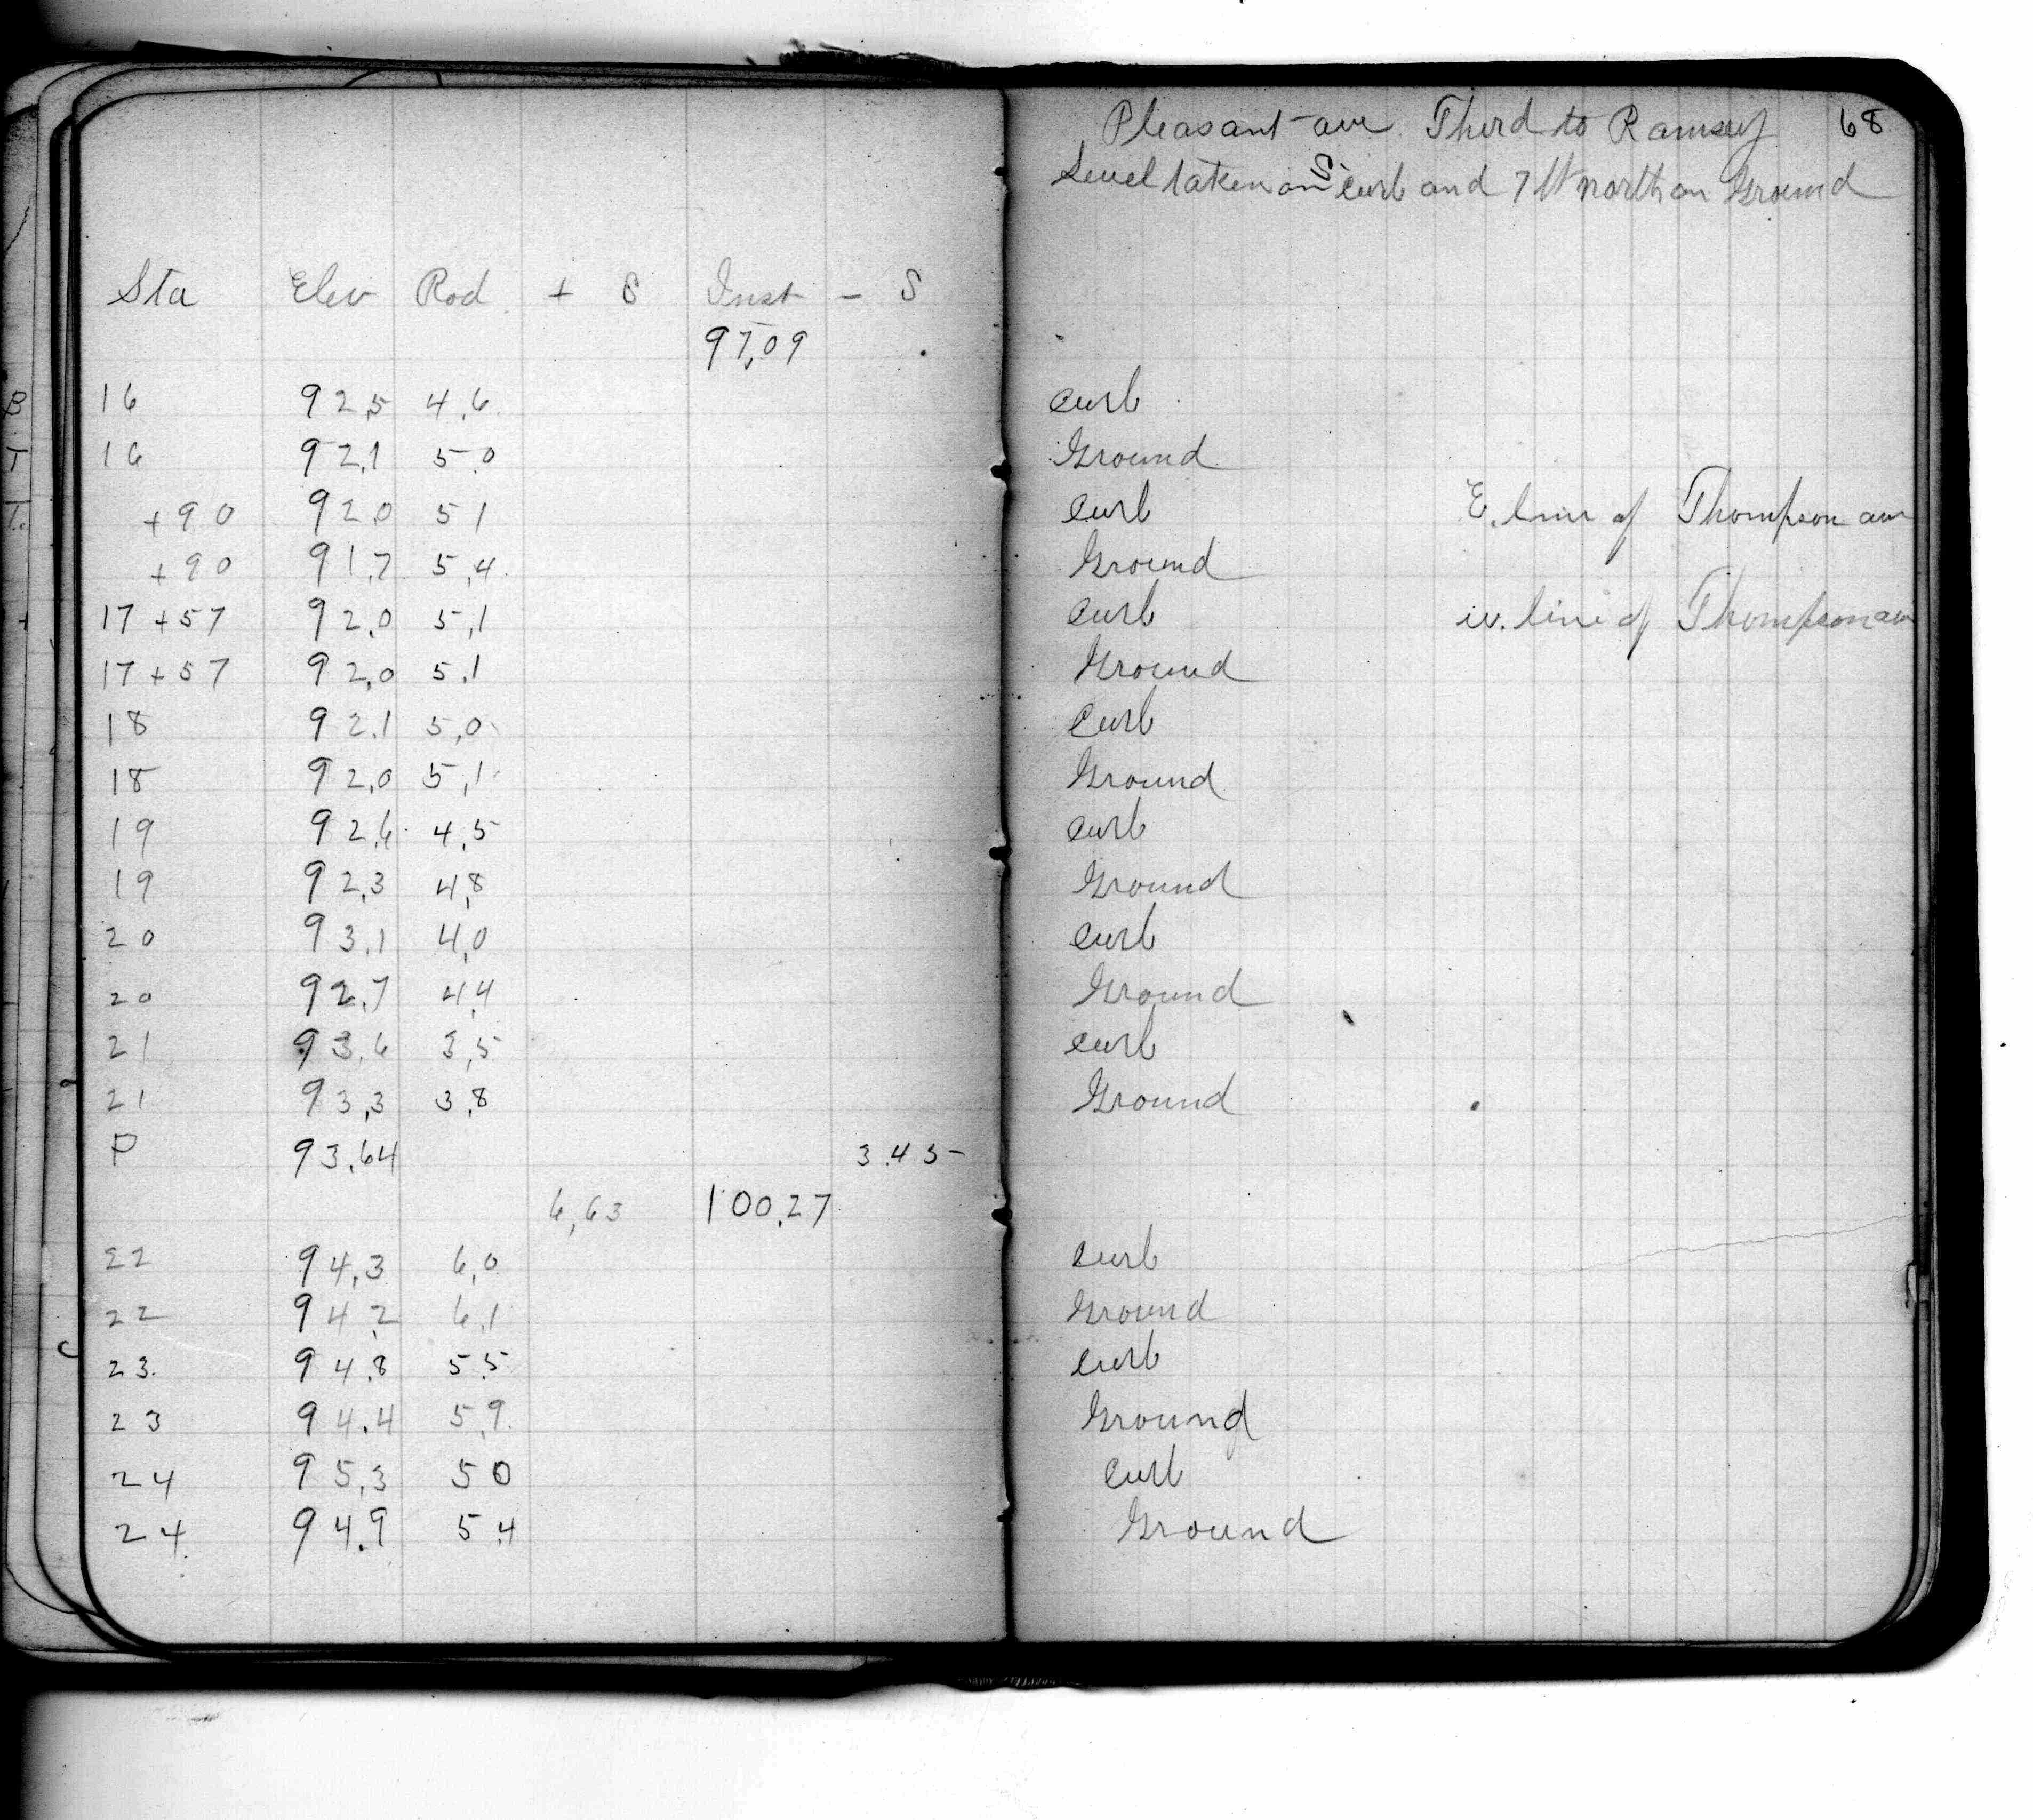 Pleasant ave. Third to Ramsey 68
Level taken on S curb and 7 ft north on Ground
Sta Elev Rod + S Inst - S
97.09
16 92.5 4.6 curb
16 92.1 5.0 Ground
+90 92.0 5.1 curb E. line of Thompson ave
+90 91.7 5.4 Ground
17+57 92.0 5.1 curb w. line of Thompson ave
17+57 92.0 5.1 Ground
18 92.1 5.0 curb
18 92.0 5.1 Ground
19 92.6 4.5 curb
19 92.3 4.8 Ground
20 93.1 4.0 curb
20 92.7 4.4 Ground
21 93.6 3.5 curb
21 93.3 3.8 Ground
P 93.64 3.45
6.63 100.27
22 94.3 6.0 curb
22 94.2 6.1 Ground
23 94.8 5.5 curb
23 94.4 5.9 Ground
24 95.3 5 0 curb
24 94.9 5.4 Ground